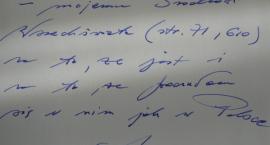 – mojemu
Wszechświat (str. 71, 610)
na to, że jest i
na to, że
się w nim jak w Polsce